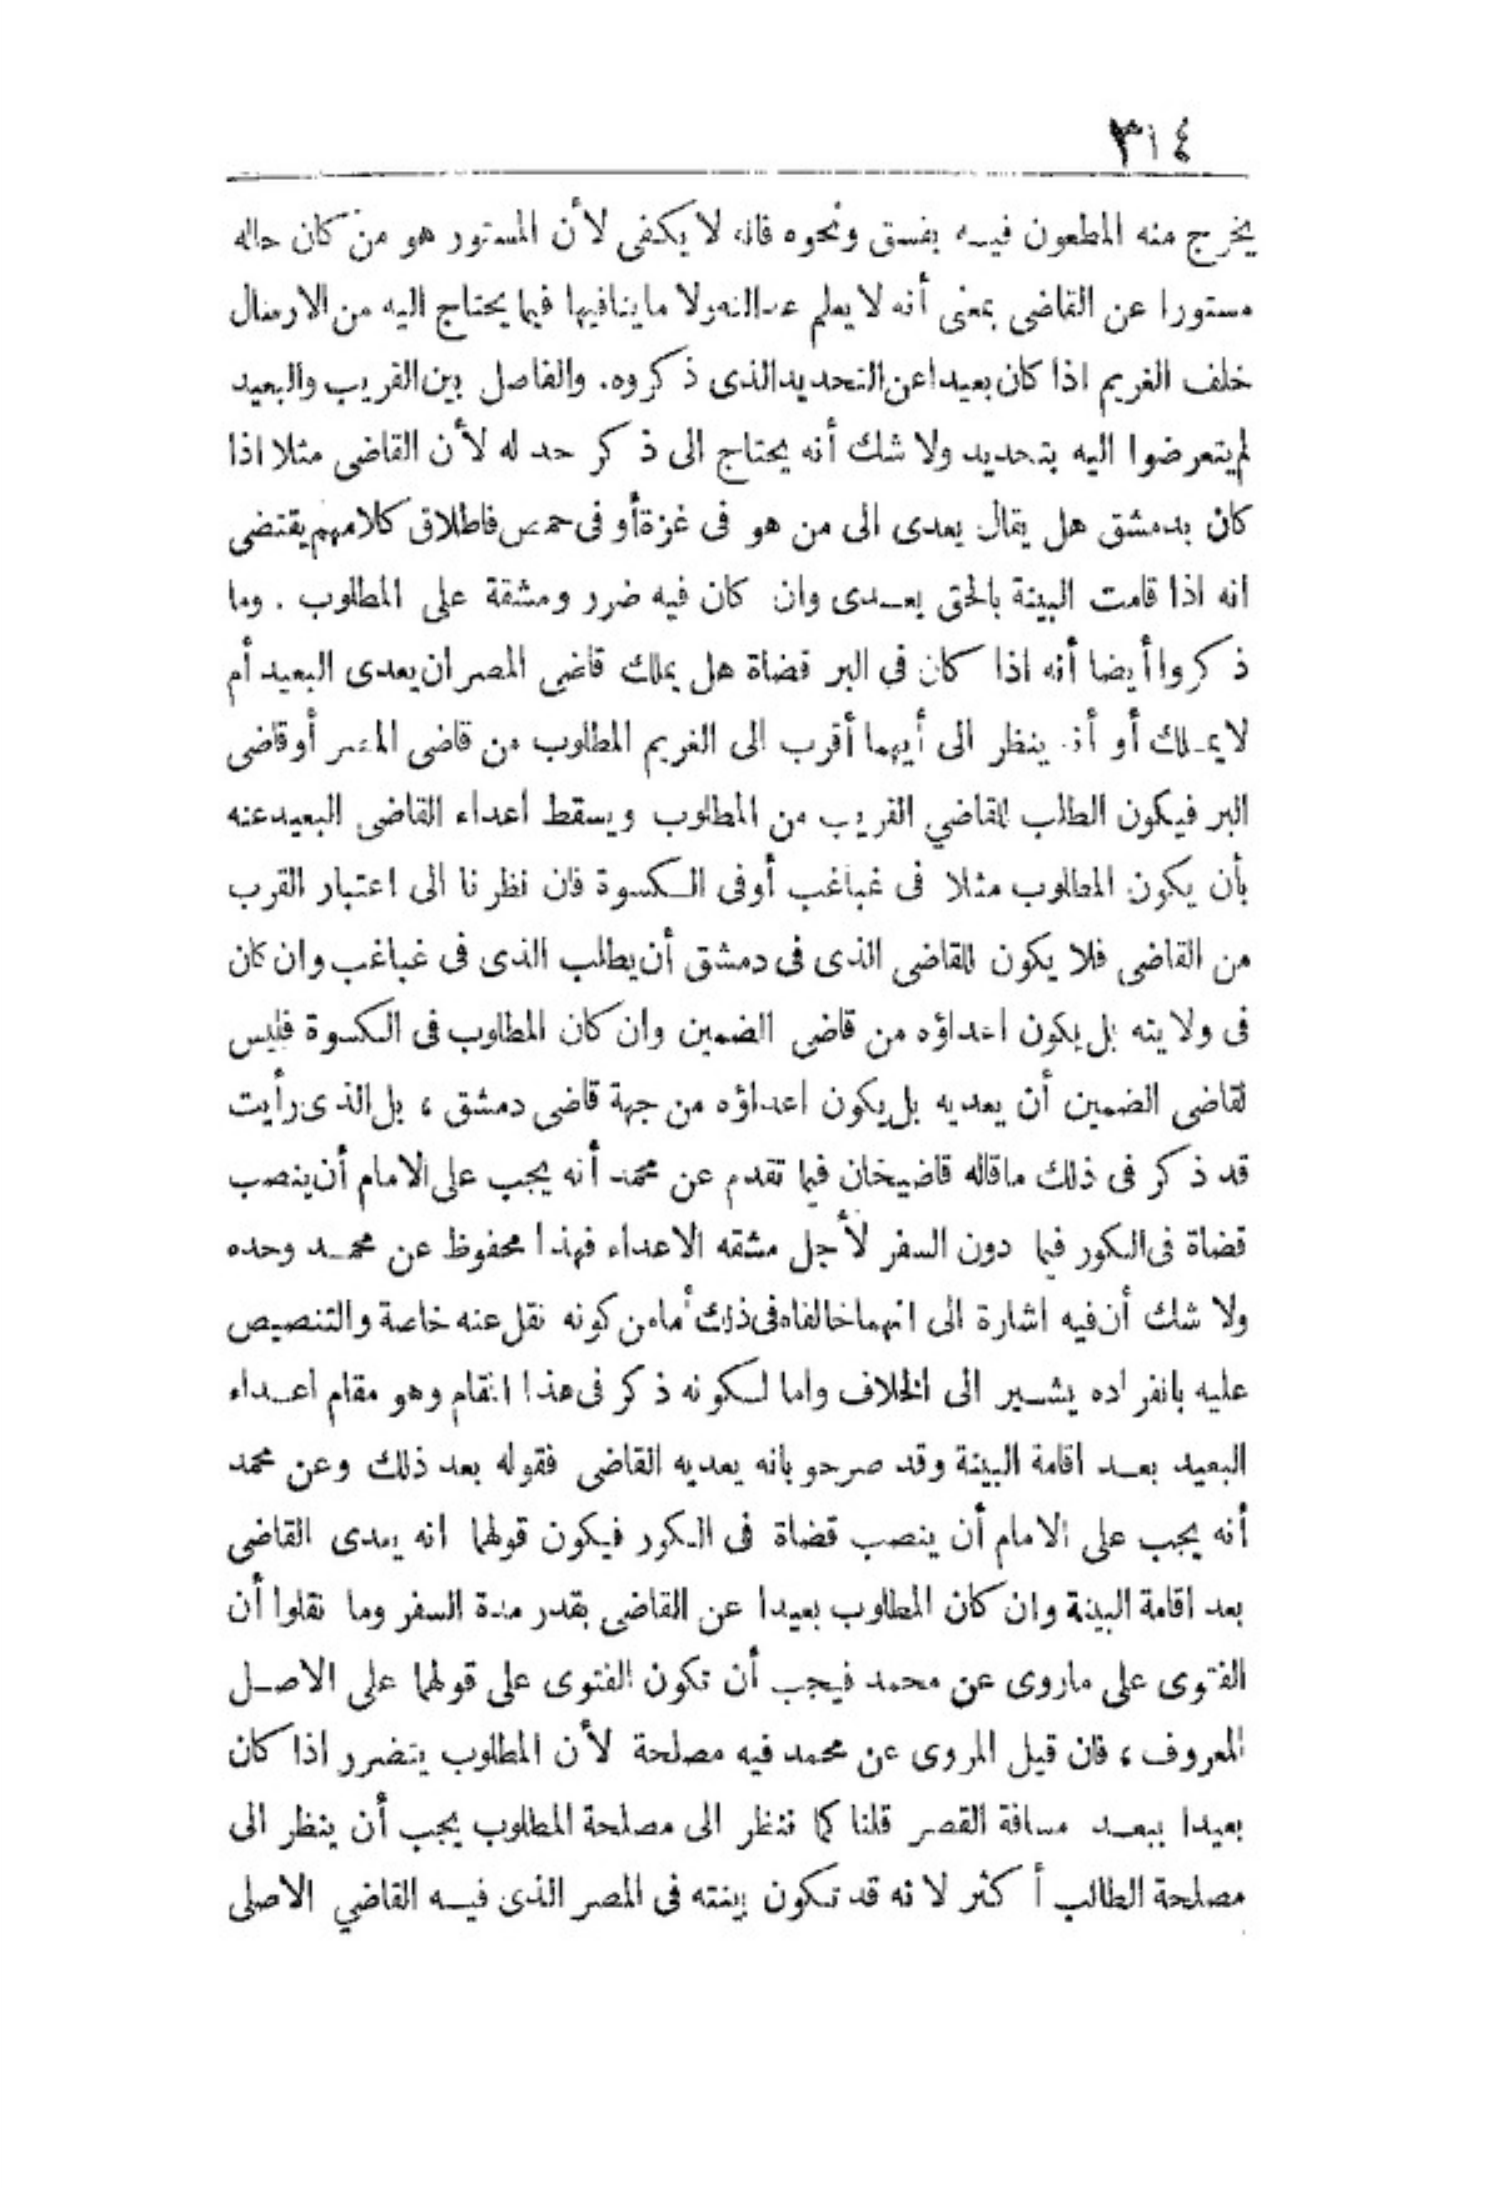 ٣١٤
يخرج منه المطعون فيه بفسق ونحوه فانه لا يكفى لأن المستور هو من كان حاله
مستورا عن القاضى بمعنى أنه لا يعلم عدالته ولا ما ينافيها فيما يحتاج اليه من الارسال
خلف الغريم اذا كان بعيدا عن التحديد الذى ذكروه. والفاصل بين القريب والبعيد
لم يتعرضوا اليه بتحديد ولا شك أنه يحتاج الى ذكر حد له لأن القاضى مثلا اذا
كان بدمشق هل يقال يعدى الى من هو فى غزة أو فى حمص فاطلاق كلامهم يقتضى
انه اذا قامت البينة بالحق يعدى وان كان فيه ضرر ومشقة على المطلوب . وما
ذكروا أيضا أنه اذا كان في البر قضاة هل يملك قاضى المصر ان يعدى البعيد أم
لا يملك أو أنه ينظر الى أيهما أقرب الى الغريم المطلوب من قاضى المصر أو قاضى
البر فيكون الطلب للقاضي القريب من المطلوب ويسقط اعداء القاضى البعيد عنه
بأن يكون المطلوب مثلا فى غباغب أو فى الكسوة فان نظرنا الى اعتبار القرب
من القاضى فلا يكون للقاضى الذى فى دمشق أن يطلب الذى فى غباغب وان كان
فى ولايته بل يكون اعداؤه من قاضى الضمين وان كان المطلوب فى الكسوة فليس
لقاضى الضمين أن يعديه بل يكون اعداؤه من جهة قاضى دمشق ، بل الذى رأيت
قد ذكر فى ذلك ما قاله قاضيخان فيما تقدم عن محمد أنه يجب على الامام أن ينصب
قضاة فى الكور فيما دون السفر لأجل مشقه الاعداء فهذا محفوظ عن محمد وحده
ولا شك أن فيه اشارة الى انهما خالفاه فى ذلك أما من كونه نقل عنه خاصة والتنصيص
عليه بانفراده يشير الى الخلاف واما لكونه ذكر فى هذا المقام وهو مقام اعداء
البعيد بعد اقامة البينة وقد صرحو بانه يعديه القاضى فقوله بعد ذلك وعن محمد
أنه يجب على الامام أن ينصب قضاة فى الكور فيكون قولهما انه يعدى القاضى
بعد اقامة البينة وان كان المطلوب بعيدا عن القاضى بقدر مدة السفر وما نقلوا أن
الفتوى على ماروى عن محمد فيجب أن تكون الفتوى على قولهما على الاصل
المعروف ، فان قيل المروى عن محمد فيه مصلحة لأن المطلوب يتضرر اذا كان
بعيدا ببعد مسافة القصر قلنا كما ننظر الى مصلحة المطلوب يجب أن ينظر الى
مصلحة الطالب أكثر لانه قد تكون بينته فى المصر الذى فيه القاضي الاصلى